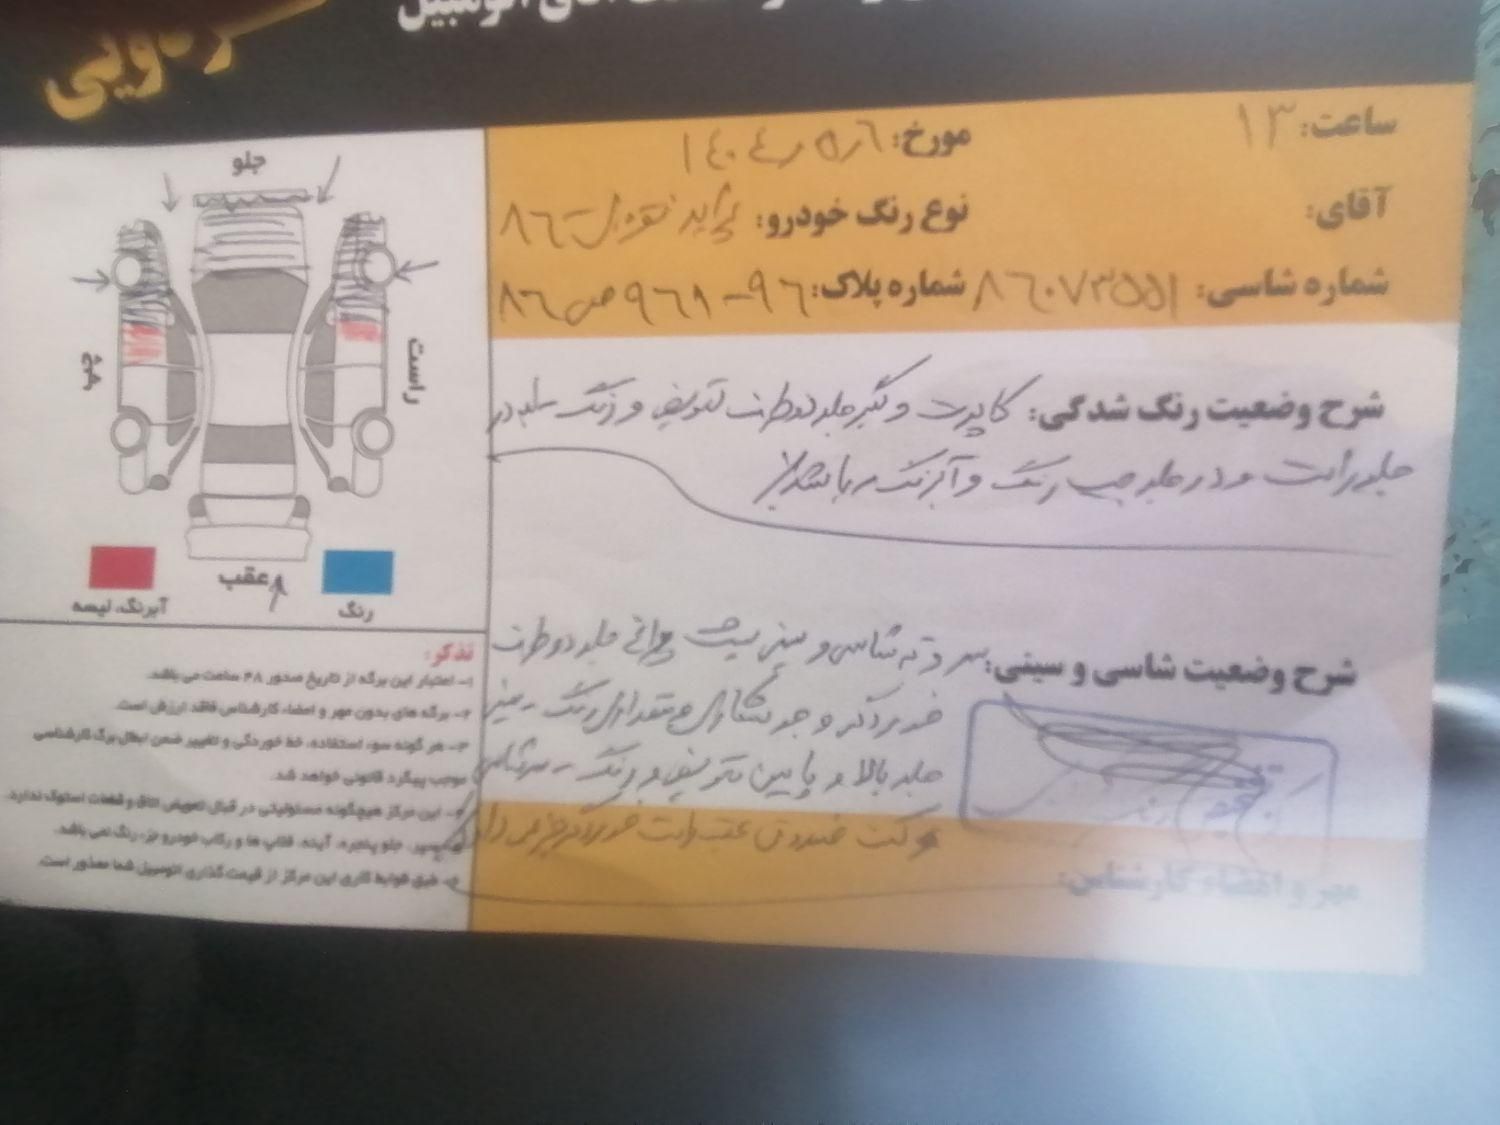 ساعت: ۱۳
مورخ: ۱۴۰۴٫۵٫۶
آقای:
نوع رنگ خودرو: پراید نقره‌ای ۸۶
شماره شاسی: ۸۶۰۷۳۵۵۱
شماره پلاک: ۹۶ – ۹۶۸ ص ۸۶
شرح وضعیت رنگ شدگی: کاپوت و گلگیر جلو دو طرف تعویض و رنگ ستون در
جلو راست و در جلو چپ رنگ و آبرنگ می‌باشد
شرح وضعیت شاسی و سینی: سر و ته شاسی و سینی پشت چراغ جلو دو طرف
خوردگی و جوشکاری و مقداری رنگ – سینی
جلو بالا و پایین تعویض و رنگ – سرشاسی
کف صندوق عقب راست خوردگی جزئی دارد
مهر و امضاء کارشناس:
جلو
راست
چپ
عقب
رنگ
آبرنگ، لیسه
تذکر:
۱– اعتبار این برگه از تاریخ صدور ۴۸ ساعت می باشد.
۲– برگه های بدون مهر و امضاء کارشناس فاقد ارزش است.
۳– هر گونه سوء استفاده، خط خوردگی و تغییر ضمن ابطال برگ کارشناسی
موجب پیگرد قانونی خواهد شد.
۴– این مرکز هیچگونه مسئولیتی در قبال تعویض اتاق و قطعات استوک ندارد.
سپر، جلو پنجره، آینه، قالپاق ها و رکاب خودرو جزء رنگ نمی باشد.
طبق ضوابط کاری این مرکز از قیمت گذاری اتومبیل شما معذور است.